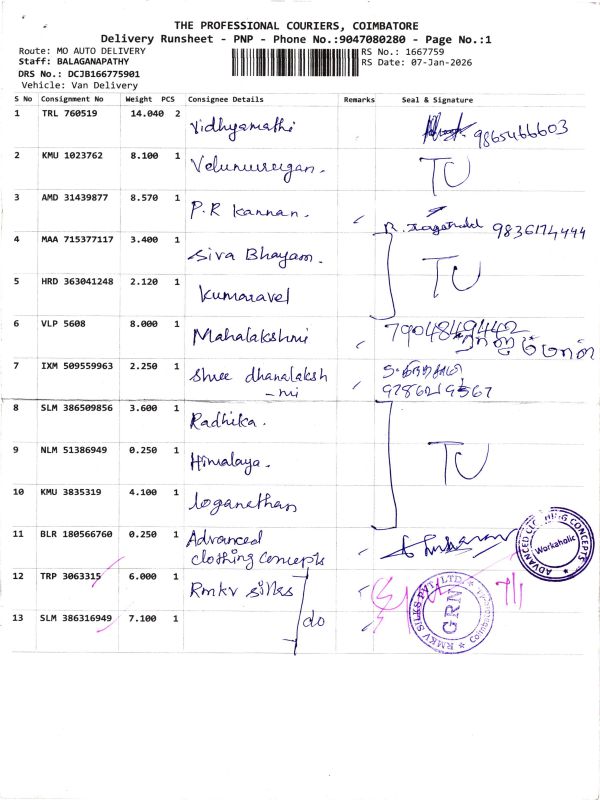 THE PROFESSIONAL COURIERS, COIMBATORE
Delivery Runsheet - PNP - Phone No.:9047080280 - Page No.:1
Route: MO AUTO DELIVERY
RS No.: 1667759
Staff: BALAGANAPATHY
RS Date: 07-Jan-2026
DRS No.: DCJB166775901
Vehicle: Van Delivery
S No Consignment No Weight PCS Consignee Details Remarks Seal & Signature
1 TRL 760519 14.040 2 Vidhyamathi 9865466603
2 KMU 1023762 8.100 1 Velumurugan. TU
3 AMD 31439877 8.570 1 P.R Kannan. 9836174444
4 MAA 715377117 3.400 1 Siva Bhayam.
5 HRD 363041248 2.120 1 Kumaravel TU
6 VLP 5608 8.000 1 Mahalakshmi 7904849442
7 IXM 509559963 2.250 1 Shree dhanalaksh
-mi
8 SLM 386509856 3.600 1 Radhika.
9 NLM 51386949 0.250 1 Himalaya. TU
10 KMU 3835319 4.100 1 loganathan
11 BLR 180566760 0.250 1 Advanced
clothing concepts
ADVANCED CLOTHING CONCEPTS
Workaholic
12 TRP 3063315 6.000 1 Rmkv silks 7/1
13 SLM 386316949 7.100 1 do
RMKV SILKS PVT LTD
GRN
Coimbatore